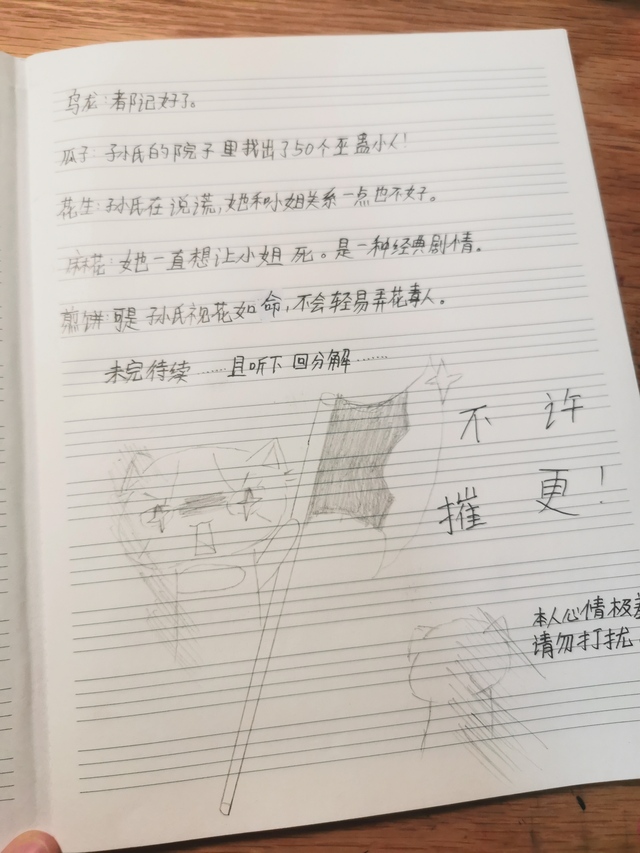 乌龙：都记好了。
瓜子：孙氏的院子里找出了50个巫蛊小人！
花生：孙氏在说谎，她和小姐关系一点也不好。
麻花：她一直想让小姐死。是一种经典剧情。
煎饼：可是孙氏视花如命，不会轻易弄花毒人。
未完待续……且听下回分解……
不许
摧更！
本人心情极差
请勿打扰